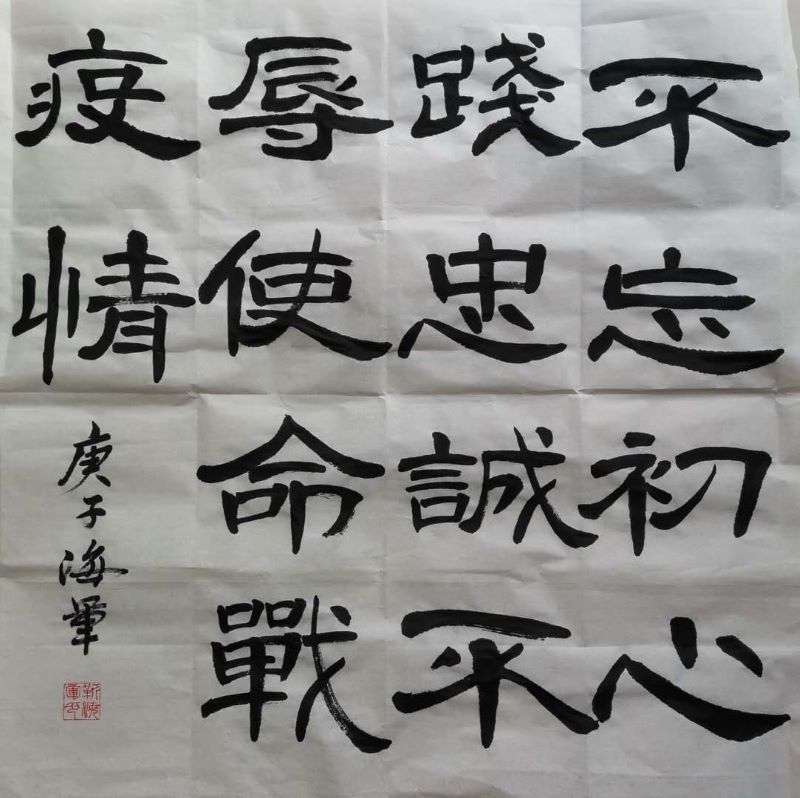 不忘初心
踐忠誠不
辱使命戰
疫情
庚子海軍